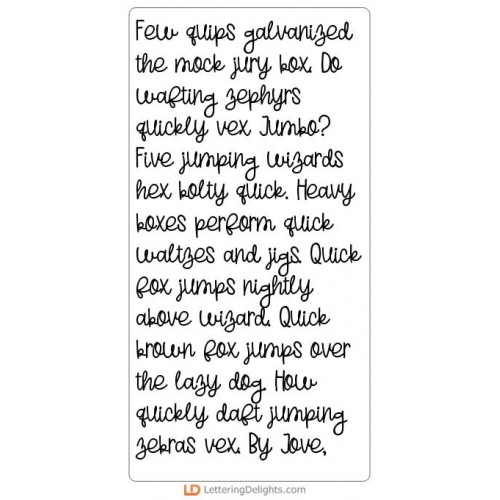 Few quips galvanized
the mock jury box. Do
wafting zephyrs
quickly vex Jumbo?
Five jumping wizards
hex bolty quick. Heavy
boxes perform quick
waltzes and jigs. Quick
fox jumps nightly
above wizard. Quick
brown fox jumps over
the lazy dog. How
quickly daft jumping
zebras vex. By Jove,
LD LetteringDelights.com